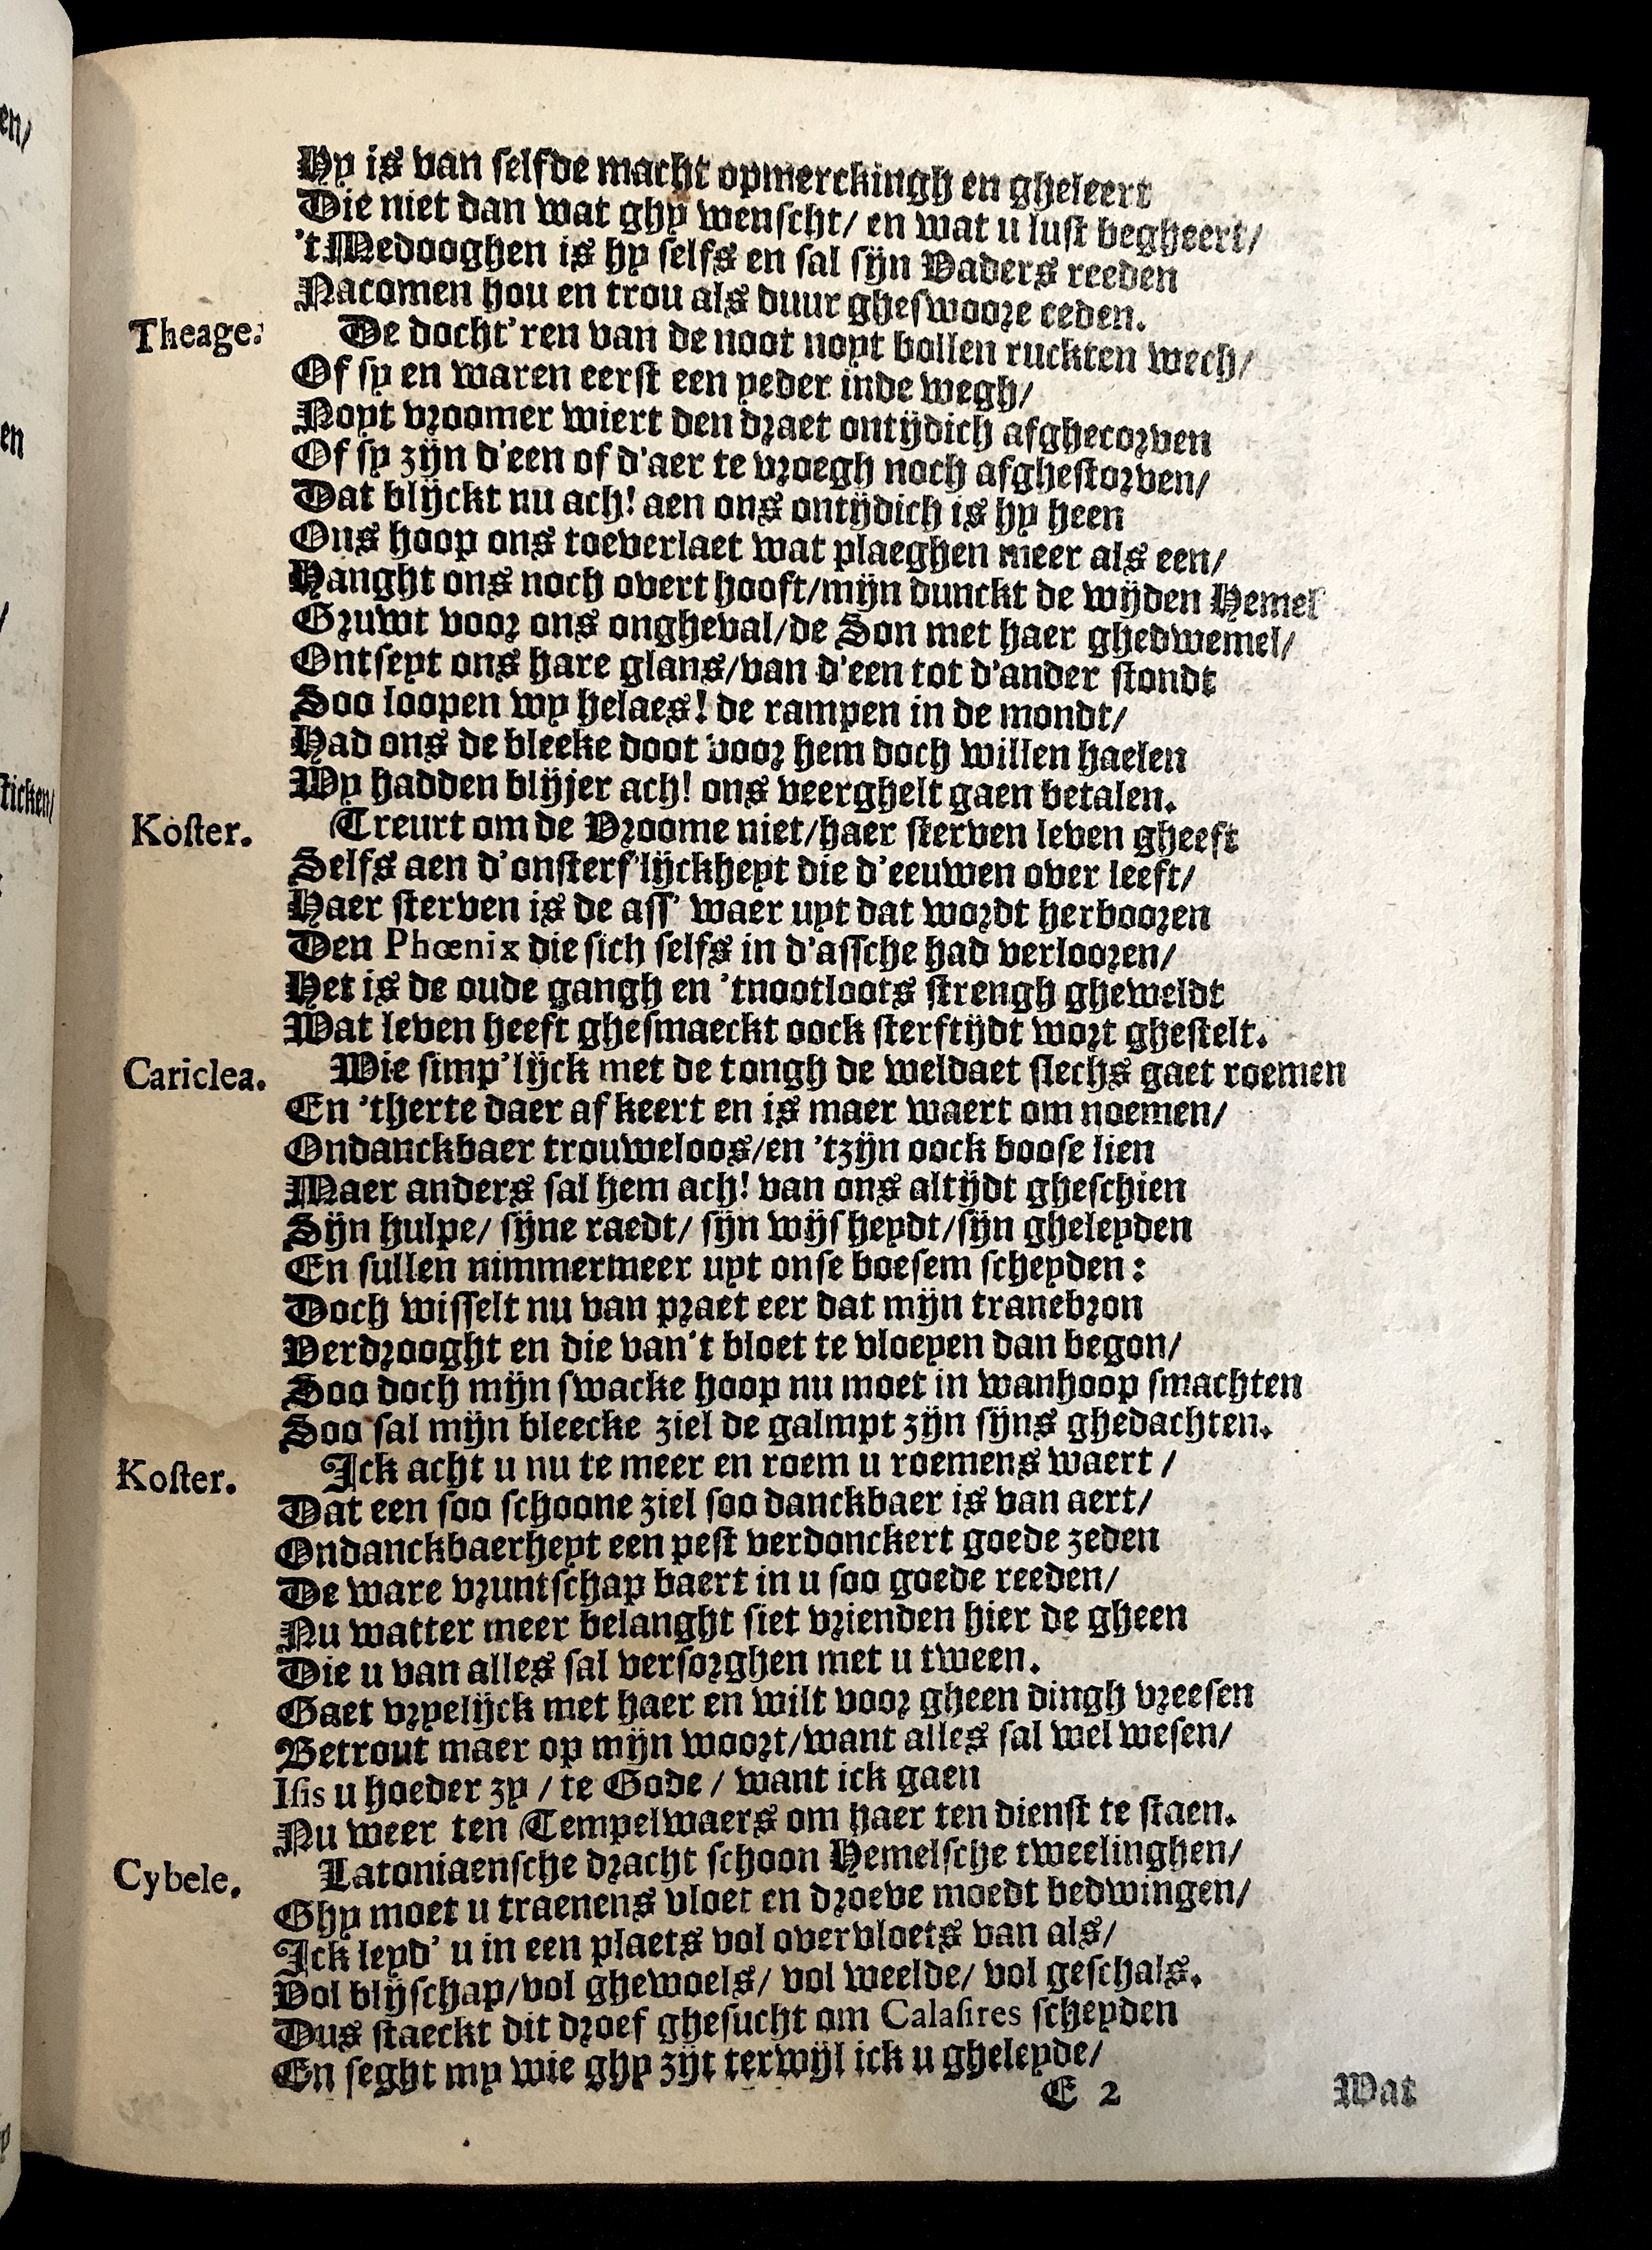 Hy is van selfde macht opmerckingh en gheleert
Die niet dan wat ghy wenscht/ en wat u lust begheert/
't Medooghen is hy selfs en sal sijn Vaders reeden
Nacomen hou en trou als duur gheswoore eeden.
Theage. De docht'ren van de noot noyt bollen ruckten wech/
Of sy en waren eerst een yeder inde wegh/
Noyt vroomer wiert den draet ontijdich afghecorven
Of sy zijn d'een of d'aer te vroegh noch afghestorven/
Dat blijckt nu ach! aen ons ontijdich is hy heen
Ons hoop ons toeverlaet wat plaeghen meer als een/
Hanght ons noch overt hooft/mijn dunckt de wijden Hemel
Gruwt voor ons ongheval/de Son met haer ghedwemel/
Ontseyt ons hare glans/van d'een tot d'ander stondt
Soo loopen wy helaes! de rampen in de mondt/
Had ons de bleeke doot voor hem doch willen haelen
Wy hadden blijjer ach! ons veerghelt gaen betalen.
Koster. Treurt om de Vroome niet/haer sterven leven gheeft
Selfs aen d'onsterf'lijckheyt die d'eeuwen over leeft/
Haer sterven is de ass' waer uyt dat wordt herbooren
Den Phœnix die sich selfs in d'assche had verlooren/
Het is de oude gangh en 'tnootloots strengh gheweldt
Wat leven heeft ghesmaeckt oock sterftijdt wort ghestelt.
Cariclea. Wie simp'lijck met de tongh de weldaet slechs gaet roemen
En 'therte daer af keert en is maer waert om noemen/
Ondanckbaer trouweloos/en 'tzijn oock boose lien
Maer anders sal hem ach! van ons altijdt gheschien
Sijn hulpe/ sijne raedt/ sijn wijsheydt/sijn gheleyden
En sullen nimmermeer uyt onse boesem scheyden:
Doch wisselt nu van praet eer dat mijn tranebron
Verdrooght en die van't bloet te vloeyen dan begon/
Soo doch mijn swacke hoop nu moet in wanhoop smachten
Soo sal mijn bleecke ziel de galmpt zijn sijns ghedachten.
Koster. Ick acht u nu te meer en roem u roemens waert/
Dat een soo schoone ziel soo danckbaer is van aert/
Ondanckbaerheyt een pest verdonckert goede zeden
De ware vruntschap baert in u soo goede reeden/
Nu watter meer belanght siet vrienden hier de gheen
Die u van alles sal versorghen met u tween.
Gaet vryelijck met haer en wilt voor gheen dingh vreesen
Betrout maer op mijn woort/want alles sal wel wesen/
Isis u hoeder zy/ te Gode/ want ick gaen
Nu weer ten Tempelwaers om haer ten dienst te staen.
Cybele. Latoniaensche dracht schoon Hemelsche tweelinghen/
Ghy moet u traenens vloet en droeve moedt bedwingen/
Ick leyd' u in een plaets vol overvloets van als/
Vol blijschap/vol ghewoels/ vol weelde/ vol geschals.
Dus staeckt dit droef ghesucht om Calasires scheyden
En seght my wie ghy zijt terwijl ick u gheleyde/
E 2 Wat